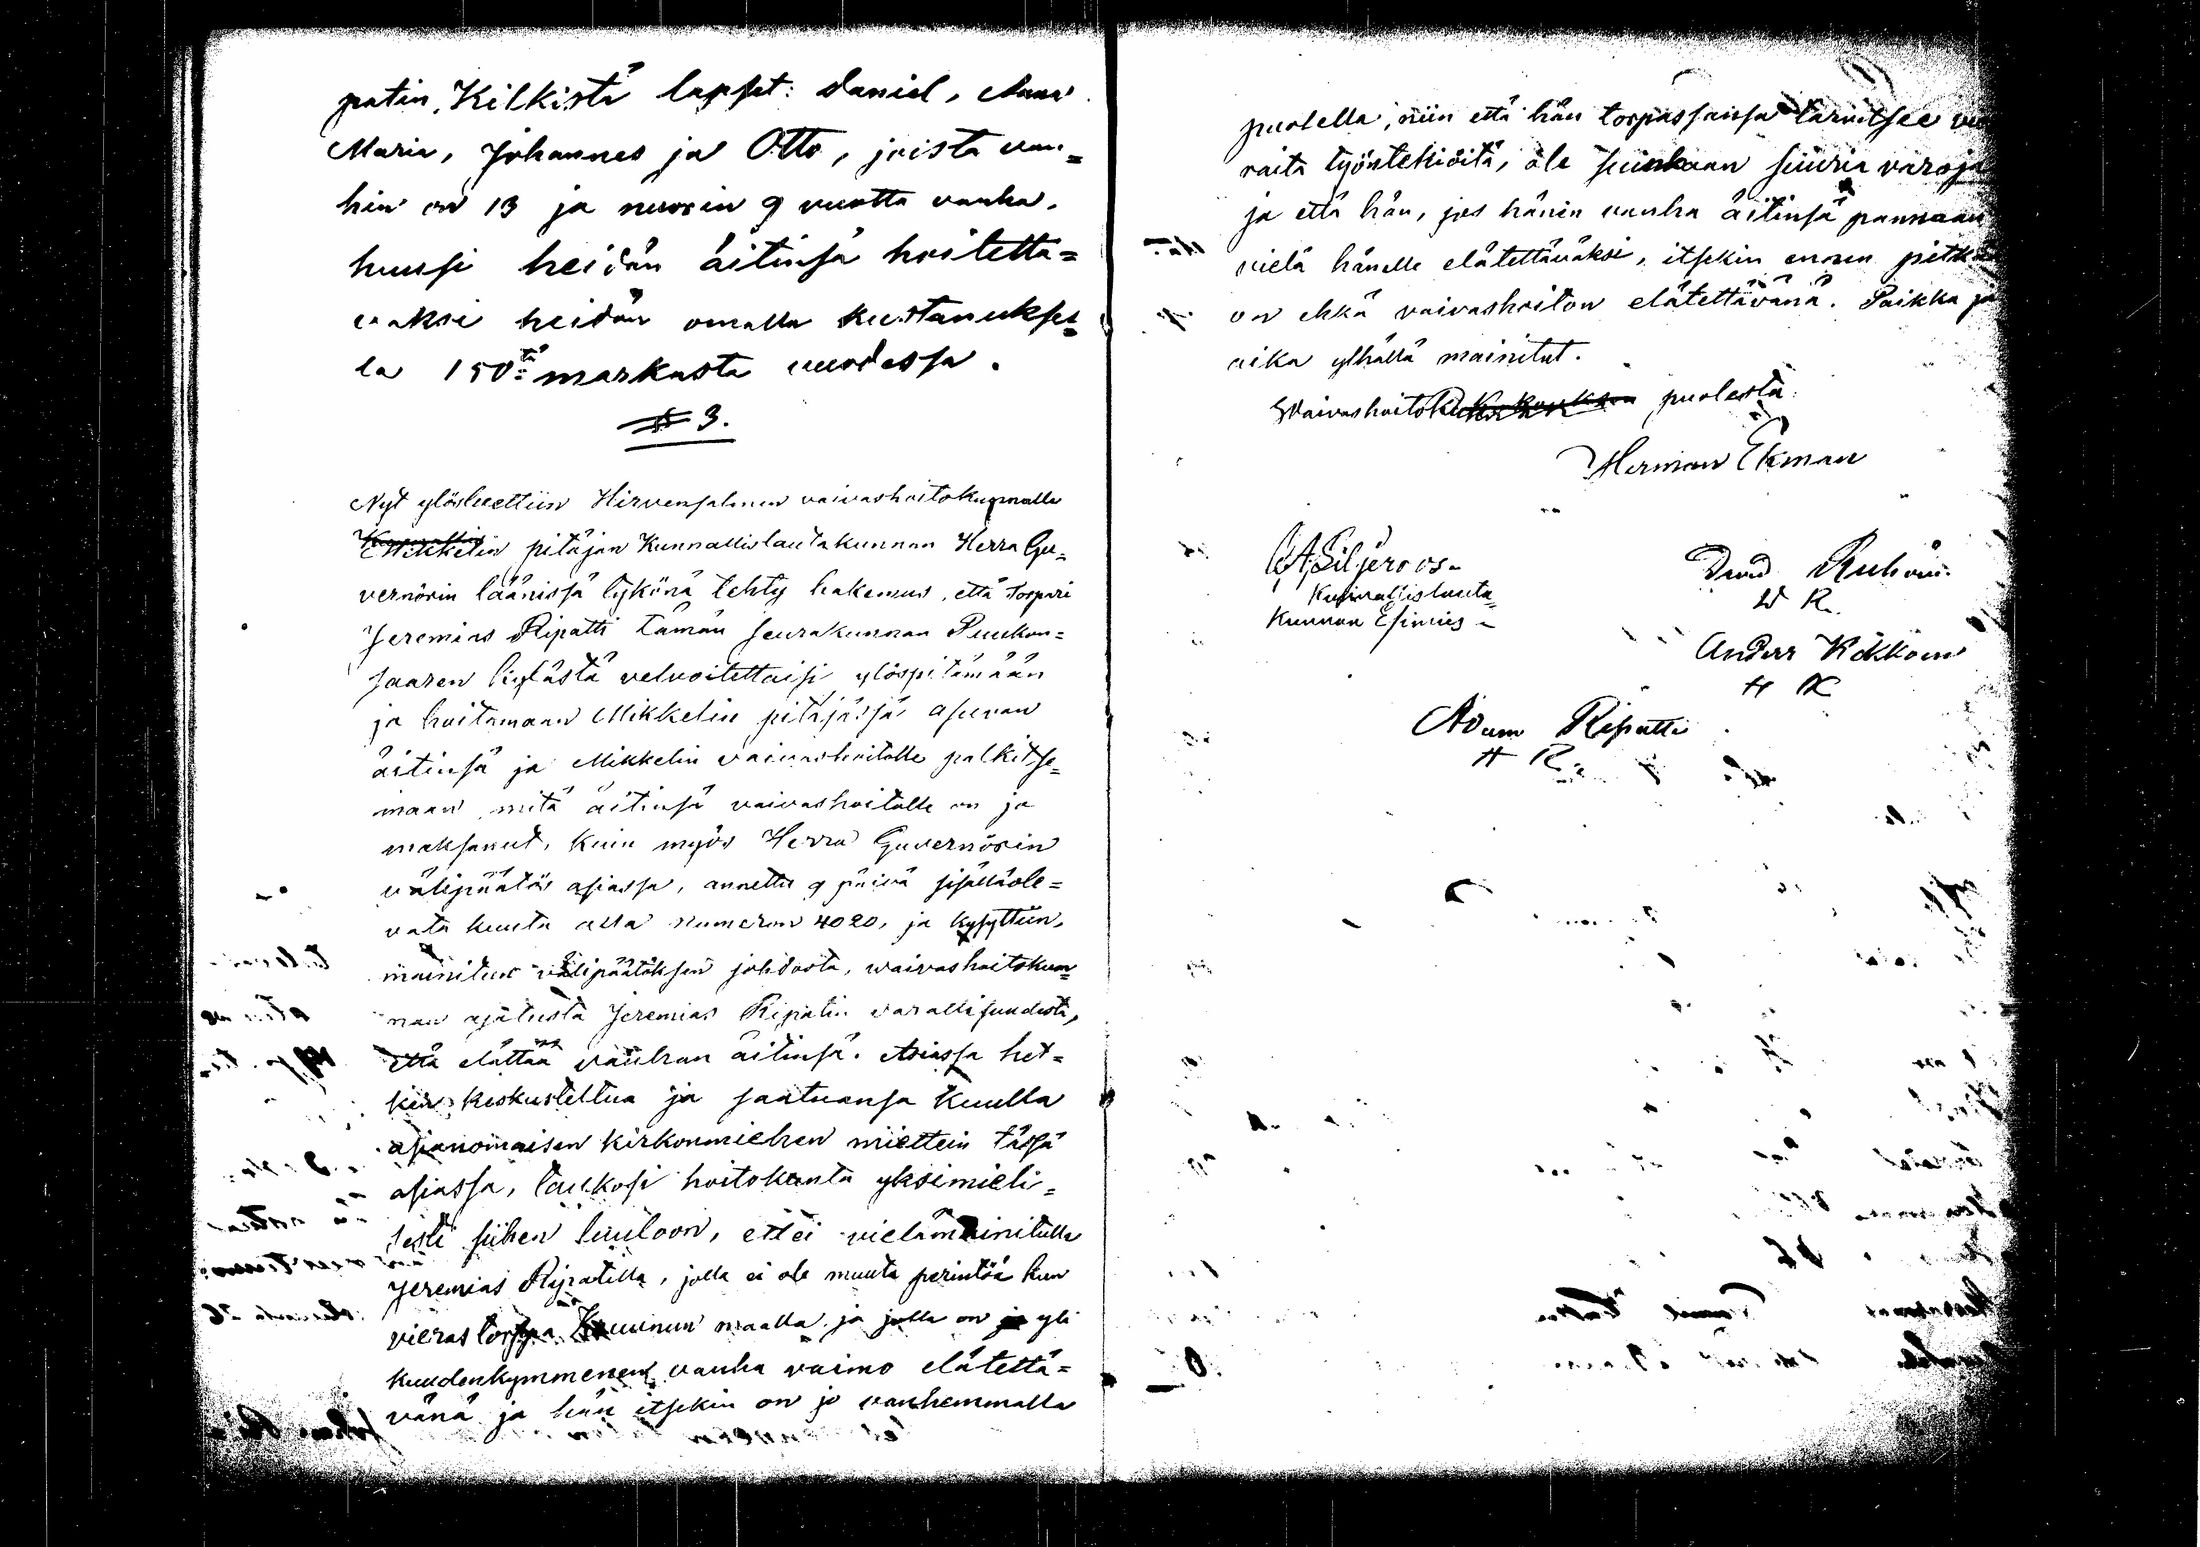 patin, Kilkistä lapset: Daniel, Anna
Maria, Johannes ja Otto, joista van=
hin on 13 ja nuorin 9 vuotta vanha,
huusi heidän äitinsä hoitetta=
vaksi heidän omalla kustanukse=
la 150:tä markasta vuodessa.
§ 3.
Nyt ylösluettiin Hirvensalmen vaivashoitokunnalle
Mikkelin pitäjän Kunnallislautakunnan Herra Gu=
vernörin läänissä tykönä tehty hakemus, että torpari
Jeremias Ripatti tämän seurakunnan Puukon=
saaren kylästä velvoitettaisi ylöspitämään
ja hoitamaan Mikkelin pitäjässä asuvan
äitinsä ja Mikkelin vaivashoitolle palkitse=
maan mitä äitinsä vaivashoitolle on jo
maksanut, kuin myös Herra Guvernörin
välipäätös asiassa, annettu 9 päivä sisälläole=
vata kuuta alla numeron 4020, ja kysyttiin,
mainitun välipäätöksen johdosta, waivashoitokun=
nan ajatusta Jeremias Ripatin varallisuudesta,
että elättää vanhan äitinsä. Asiassa het=
kin keskusteltua ja saatuansa kuulla
asianomaisen kirkonmiehen mietteen tässä
asiassa, laukosi hoitokunta yksimieli=
sesti siihen luuloon, ettei vielämainitulla
Jeremias Ripatilla, jolla ei ole muuta perintöä kun
vieras torppa Kruunun maalla ja jolla on jo yli
kuudenkymmenen vanha vaimo elätettä=
vänä ja hän itsekin on jo vanhemmalla
puolella, niin että hän torpassansa tarvitsee
raita työntekiöitä, ole suinkaan suuria varoja
ja että hän, jos hänen vanha äitinsä pannaan
vielä hänelle elätettäväksi, itsekin ennen pitkää
on ehkä vaivashoiton elätettävänä. Paikka ja
aika ylhällä mainitut.
Waivashoitokokouksen puolesta
Herman Ekman
C A Siljeroos
Kunnallislauta
kunnan Esimies
David Ruhanen
D R
Anders Kokkonen
A K
Adam Ripatti
A R